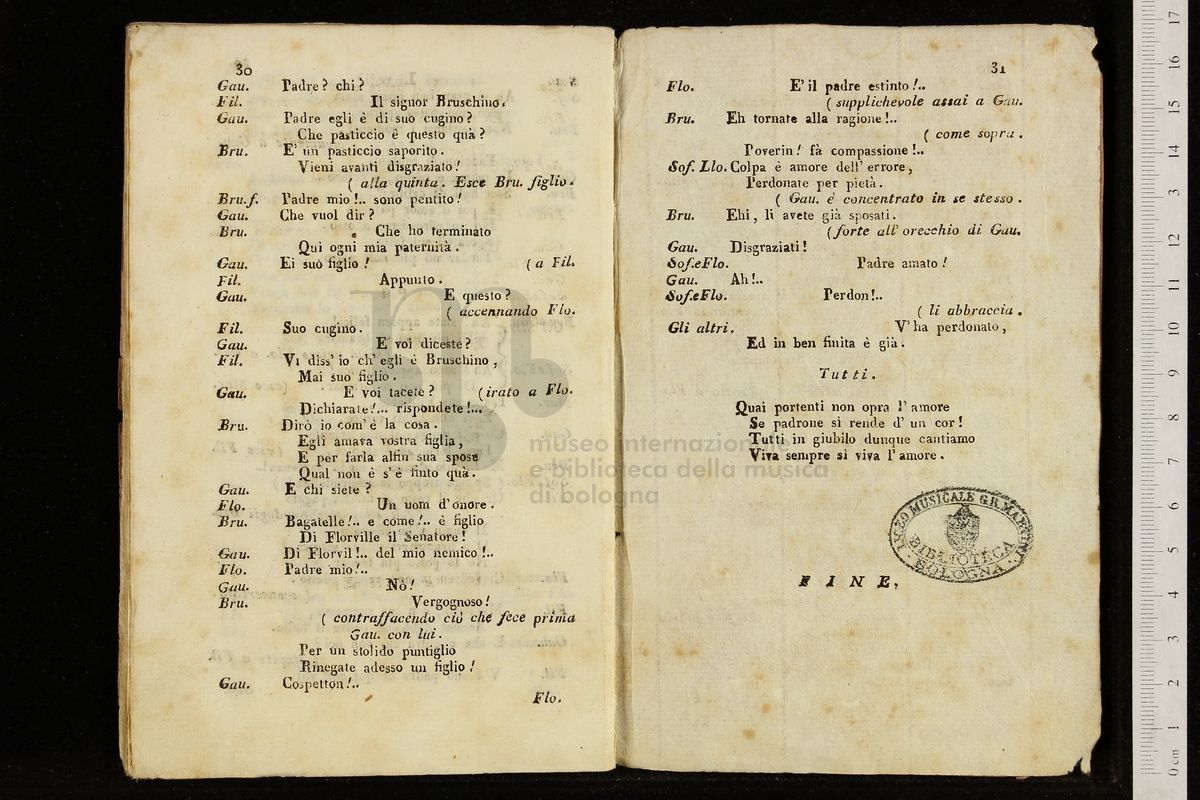 30
Gau. Padre? chi?
Fil. Il signor Bruschino.
Gau. Padre egli è di suo cugino?
Che pasticcio è questo quà?
Bru. E' un pasticcio saporito.
Vieni avanti disgraziato!
( alla quinta. Esce Bru. figlio.
Bru.f. Padre mio!.. sono pentito!
Gau. Che vuol dir?
Bru. Che ho terminato
Qui ogni mia paternità.
Gau. Ei suo figlio! ( a Fil.
Fil. Appunto.
Gau. E questo?
( accennando Flo.
Fil. Suo cugino.
Gau. E voi diceste?
Fil. Vi diss' io ch' egli è Bruschino,
Mai suo figlio.
Gau. E voi tacete? (irato a Flo.
Dichiarate!... rispondete!...
Bru. Dirò io com' è la cosa.
Egli amava vostra figlia,
E per farla alfin sua spose
Qual non è s' è finto quà.
Gau. E chi siete?
Flo. Un uom d' onore.
Bru. Bagatelle!.. e come!.. è figlio
Di Florville il Senatore!
Gau. Di Florvil!.. del mio nemico!..
Flo. Padre mio!..
Gau. Nò!
Bru. Vergognoso!
( contraffacendo ciò che fece prima
Gau. con lui.
Per un stolido puntiglio
Rinegate adesso un figlio!
Gau. Cospetton!..
Flo.
31
Flo. E' il padre estinto!..
( supplichevole assai a Gau.
Bru. Eh tornate alla ragione!..
( come sopra.
Poverin! fà compassione!..
Sof. Llo. Colpa è amore dell' errore,
Perdonate per pietà.
( Gau. è concentrato in se stesso.
Bru. Ehi, li avete già sposati.
(forte all' orecchio di Gau.
Gau. Disgraziati!
Sof.eFlo. Padre amato!
Gau. Ah!..
Sof.eFlo. Perdon!..
( li abbraccia.
Gli altri. V' ha perdonato,
Ed in ben finita è già.
Tutti.
Quai portenti non opra l' amore
Se padrone si rende d' un cor!
Tutti in giubilo dunque cantiamo
Viva sempre sì viva l' amore.
LICEO MUSICALE G.B. MARTINI
BIBLIOTECA
BOLOGNA
FINE,
museo internazionale
e biblioteca della musica
di bologna
0 cm 1 2 3 4 5 6 7 8 9 10 11 12 13 14 15 16 17